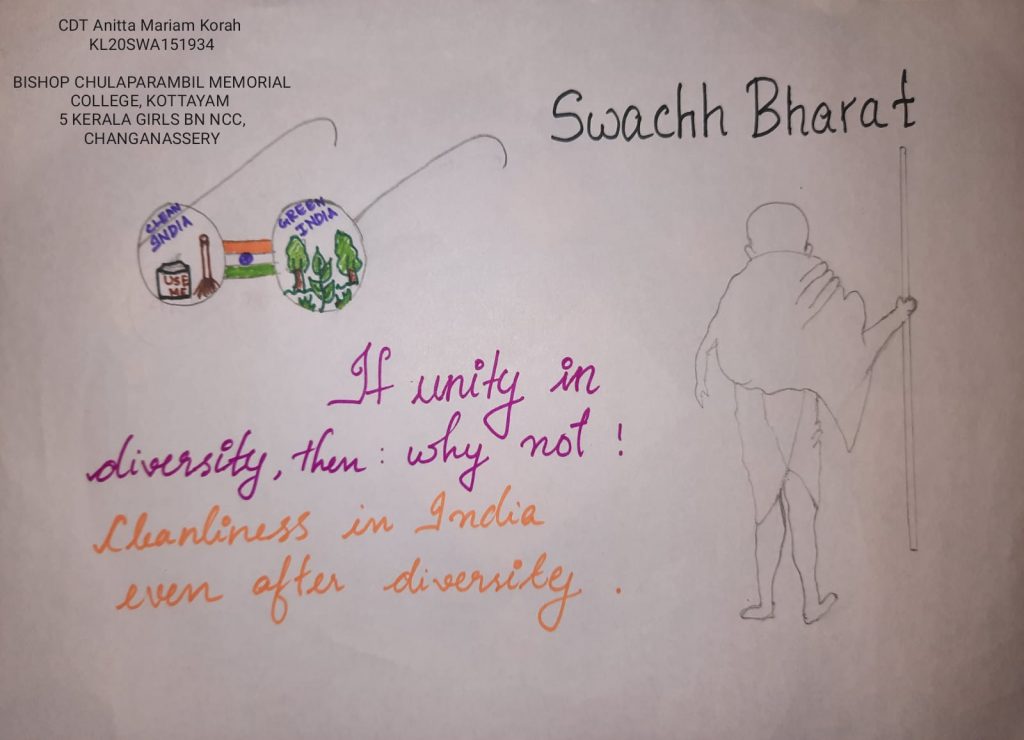 CDT Anitta Mariam Korah
KL20SWA151934
BISHOP CHULAPARAMBIL MEMORIAL
COLLEGE, KOTTAYAM
5 KERALA GIRLS BN NCC,
CHANGANASSERY
Swachh Bharat
CLEAN
INDIA
USE
ME
GREEN
INDIA
If unity in
diversity, then : why not !
Cleanliness in India
even after diversity .